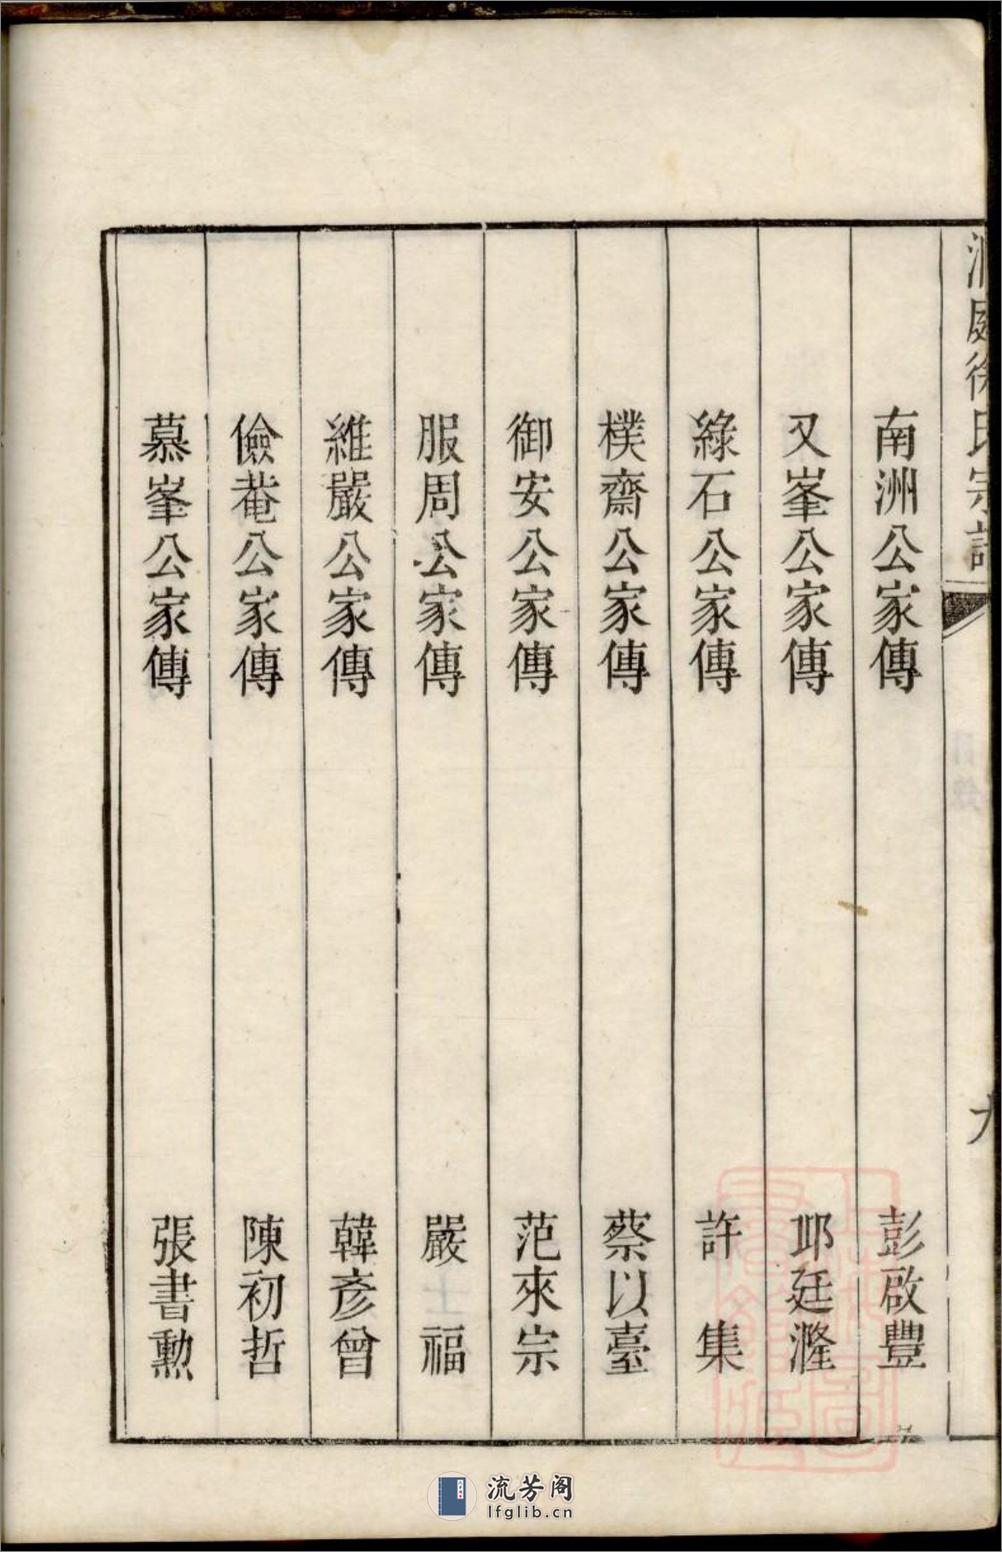 洞庭徐氏宗譜
九
南洲公家傳 彭啟豐
又峯公家傳 邱廷漋
綠石公家傳 許集
樸齋公家傳 蔡以臺
御安公家傳 范來宗
服周公家傳 嚴福
維嚴公家傳 韓彥曾
儉菴公家傳 陳初哲
慕峯公家傳 張書勲
流芳阁
lfglib.cn